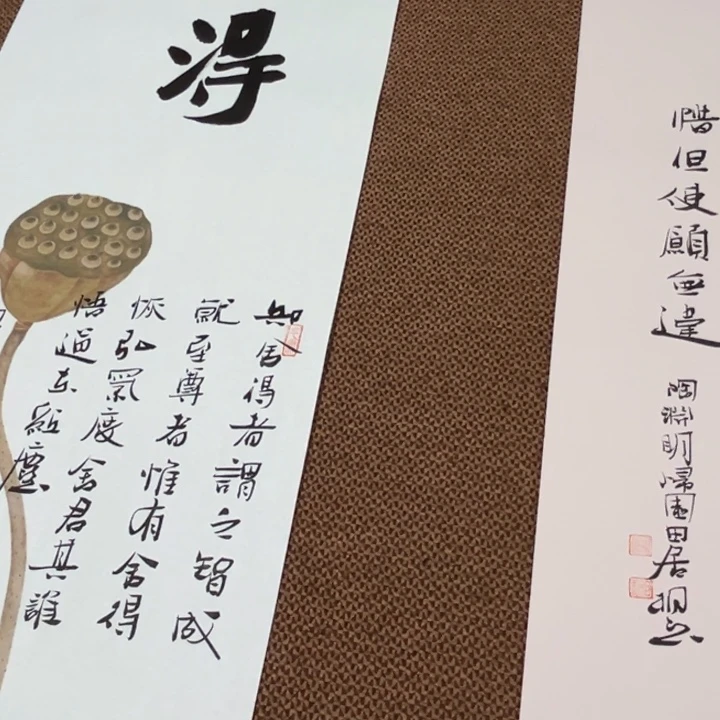 得
知舍得者謂之智成
就至尊者惟有舍得
恢弘氣度舍君其誰
悟塵
惜但使願無違
陶淵明歸園田居